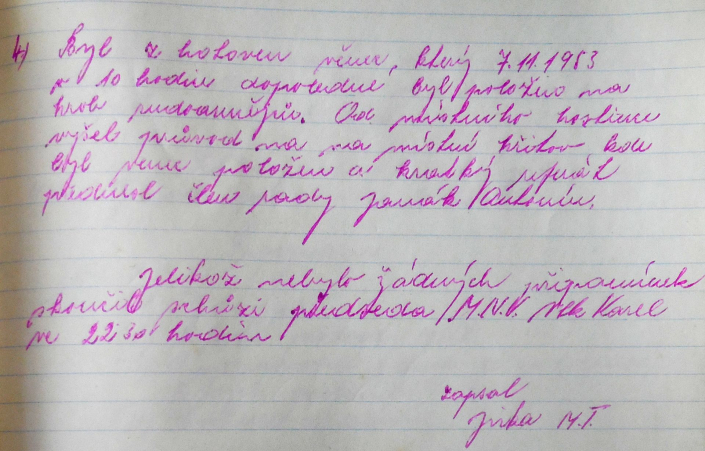 4) Byl z hotoven věnec, který 7.11.1983
v 10 hodin dopoledne, byl položen na
hrob rudoarmějců. Od místního hostince
vyšel průvod na na místní hřbitov kde
byl venec položen a krátký referát
přednesl člen rady Janák Antonín.
Jelikož nebylo žádných připomínek
skončil schůzi předseda M.N.V. Karel
ve 22:30 hodin
zapsal
Jirka M.T.